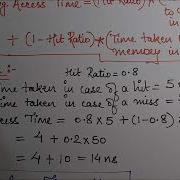 g Access Time = (Hit Ratio) *
to
in
+ (1 - Hit Ratio) * (Time taken
memory in
Hit Ratio = 0.8
ime taken in case of a hit = 5 n
time taken in case of a miss = 5
ccess Time = 0.8 x 5 + (1 - 0.8) x
= 4 + 0.2 x 50
= 4 + 10 = 14 ns